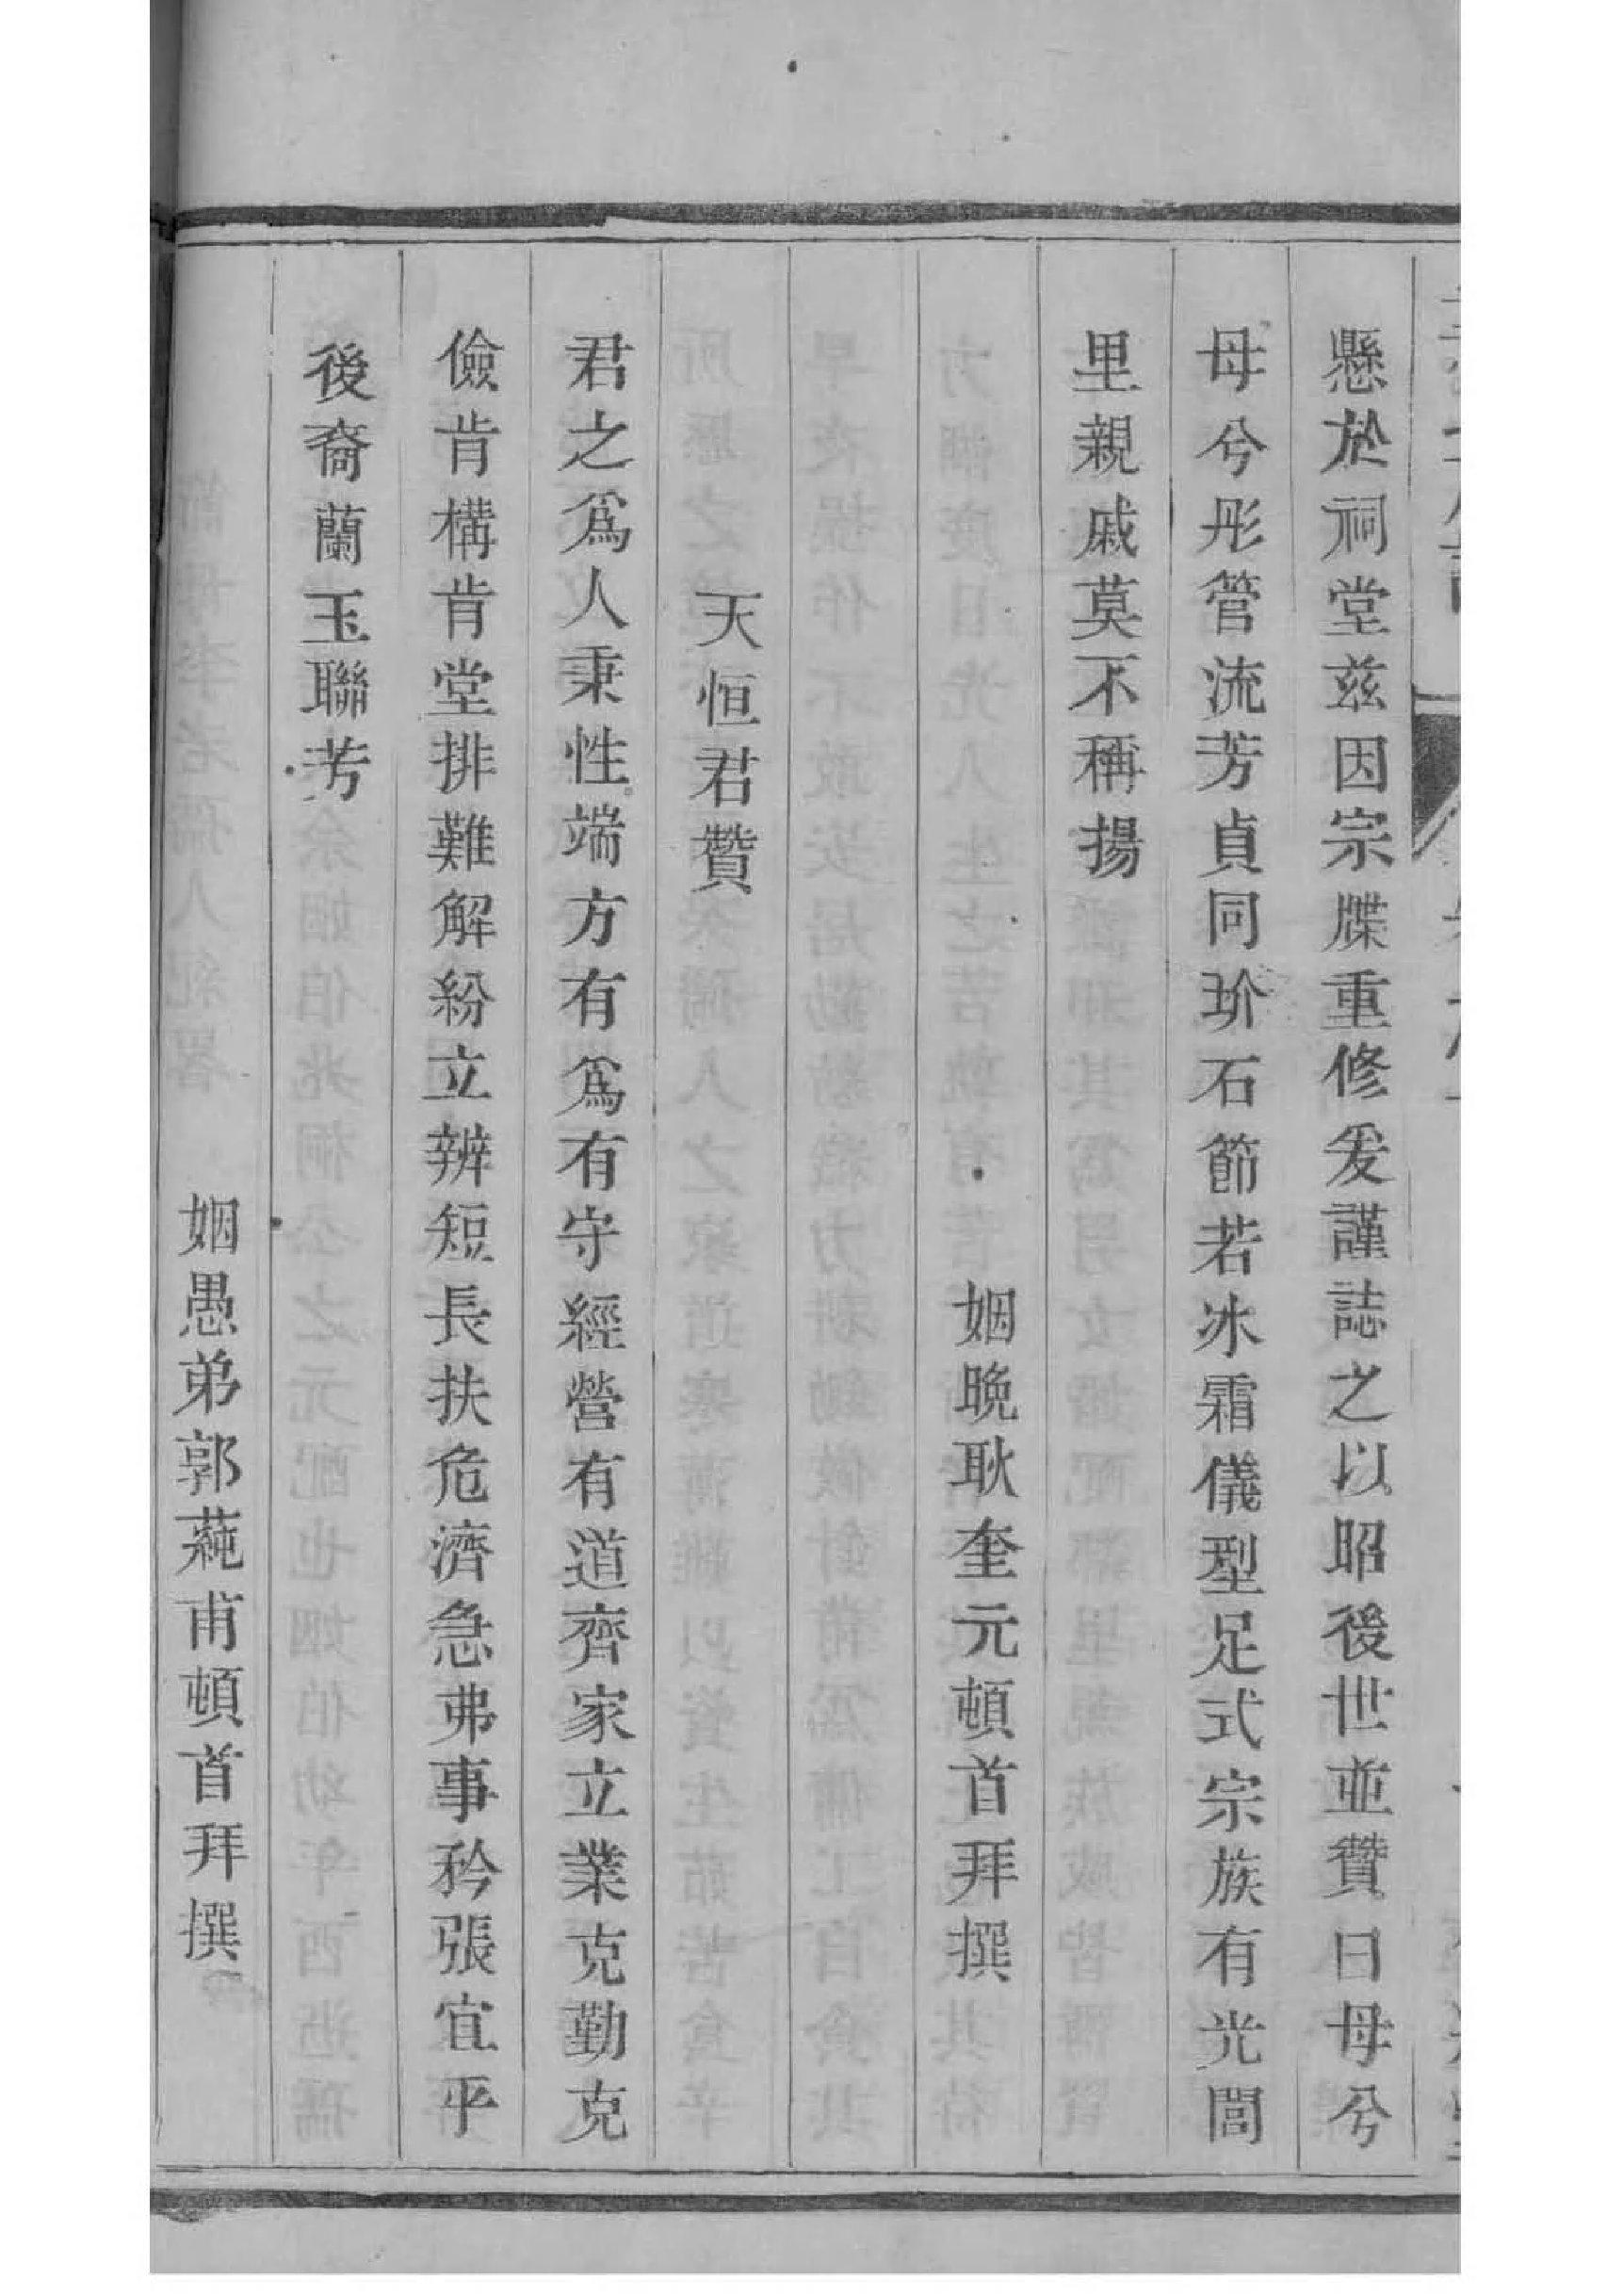 懸於祠堂茲因宗牒重修爰謹誌之以昭後世並贊曰母兮
母兮彤管流芳貞同玠石節若冰霜儀型足式宗族有光閭
里親戚莫不稱揚
姻晚耿奎元頓首拜撰
天恒君贊
君之爲人秉性端方有爲有守經營有道齊家立業克勤克
儉肯構肯堂排難解紛立辨短長扶危濟急弗事矜張宜乎
後裔蘭玉聯芳
姻愚弟郭蒓甫頓首拜撰